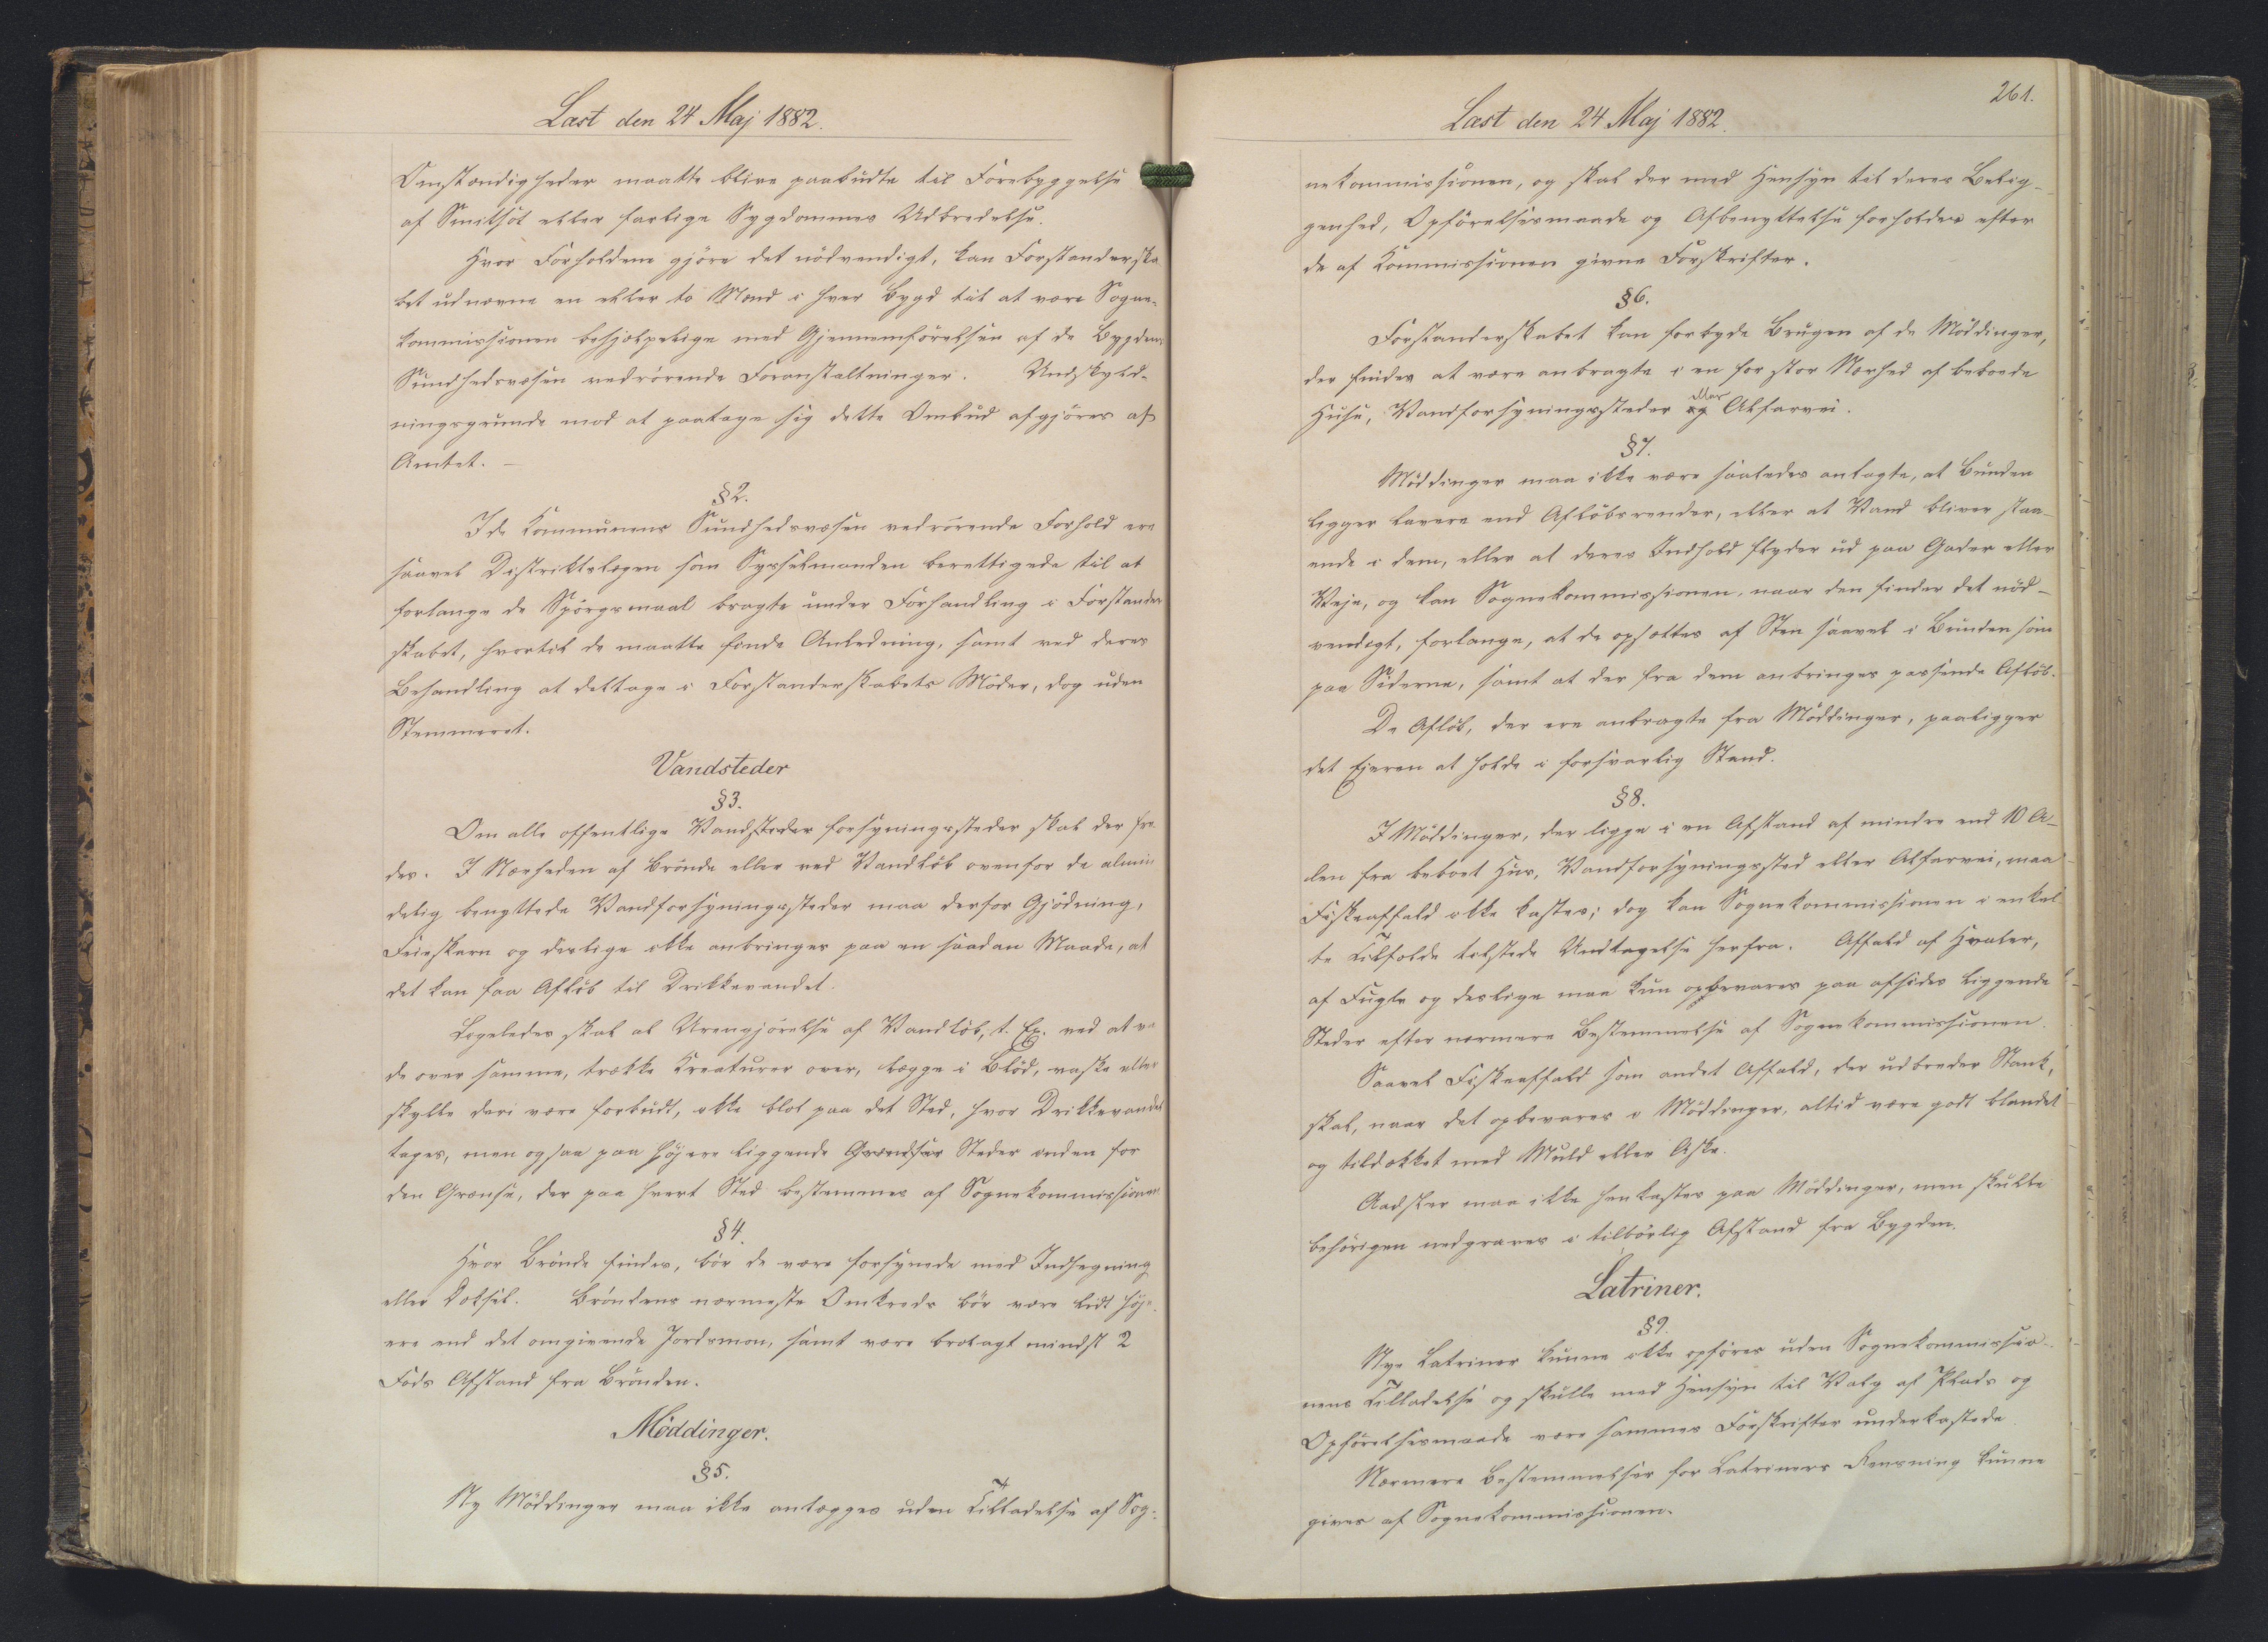 Læst den 24 Maj 1882.
Omstændigheder maatte blive paabudte til Forebyggelse
af Smitsot eller farlige Sygdommes Udbredelse.
Hvor Forholdene gjöre det nödvendigt, kan Forstanderska
bet udnævne en eller to Mænd i hver Bygd til at være Sogne-
kommissionen behjælpelige med Gjennemförelsen af de Bygdens
Sundhedsvæsen vedrörende Foranstaltninger. Undskyld-
ningsgrunde mod at paatage sig dette Ombud afgjöres af
Amtet. –
§2.
I de Kommunens Sundhedsvæsen vedrörende Forhold ere
saavel Distriktslægen som Sysselmanden berettigede til at
forlange de Spörgsmaal bragte under Forhandling i Forstander
skabet, hvortil de maatte finde Anledning, samt ved deres
Behandling at deltage i Forstanderskabets Möder, dog uden
Stemmeret.
Vandsteder
§3.
Om alle offentlige Vandsteder forsyningssteder skal der fre
des. I Nærheden af Brönde eller ved Vandlöb ovenfor de almin
delig benyttede Vandforsyningssteder maa derfor Gjödning,
Feieskarn og deslige ikke anbringes paa en saadan Maade, at
det kan faa Aflöb til Drikkevandet.
Ligeledes skal al Urengjörelse af Vandlöb, t. Ex. ved at va
de over samme, trække Kreaturer over, lægge i Blöd, vaske eller
skylle deri være forbudt, ikke blot paa det Sted, hvor Drikkevandet
tages, men ogsaa paa höjere liggende Grændser Steder inden for
den Grænse, der paa hvert Sted bestemmes af Sognekommissionen
§4.
Hvor Brönde findes, bör de være forsynede med Indhegning
eller Dæksel. Bröndens nærmeste Omkreds bör være lidt höj-
ere end det omgivende Jordsmon, samt være brolagt mindst 2
Fods Afstand fra Brönden.
Möddinger.
§5.
Ny Möddinger maa ikke anlægges uden Tilladelse af Sog-
261.
Læst den 24 Maj 1882.
nekommissionen, og skal der med Hensyn til deres Belig-
genhed, Opförelsesmaade og Afbenyttelse forholdes efter
de af Kommissionen givne Forskrifter.
§6.
Forstanderskabet kan forbyde Brugen af de Möddinger,
der findes at være anbragte i en for stor Nærhed af beboede
eller
Huse, Vandforsyningssteder og Alfarvei.
§7.
Möddinger maa ikke være saaledes anlagte, at Bunden
ligger lavere end Aflöbsrender, eller at Vand bliver staa-
ende i dem, eller at deres Indhold flyder ud paa Gader eller
Veje, og kan Sognekommissionen, naar den finder det nöd-
vendigt, forlange, at de opsættes af Sten saavel i Bunden som
paa Siderne, samt at der fra dem anbringes passende Aflöb.
De Aflöb, der ere anbragte fra Möddinger, paaligger
det Ejeren at holde i forsvarlig Stand.
§8.
I Möddinger, der ligge i en Afstand af mindre end 10 A-
len fra beboet Hus, Vandforsyningssted eller Alfarvei, maa
Fiskeaffald ikke kastes; dog kan Sognekommissionen i enkel-
te Tilfælde tilstede Undtagelse herfra. Affald af Hvaler,
af Fugle og deslige maa kun opbevares paa afsides liggende
Steder efter nærmere Bestemmelse af Sognekommissionen.
Saavel Fiskeaffald som andet Affald, der udbreder Stank,
skal, naar det opbevares i Möddinger, altid være godt blandet
og tildækket med Muld eller Aske.
Aadsler maa ikke henkastes paa Möddinger, men skulle
behörigen nedgraves i tilbörlig Afstand fra Bygden.
Latriner.
§9.
Nye Latriner kunne ikke opföres uden Sognekommissio-
nens Tilladelse og skulle med Hensyn til Valg af Plads og
Opförelsesmaade være sammes Forskrifter underkastede.
Nærmere Bestemmelser for Latriners Rensning kunne
gives af Sognekommissionen.